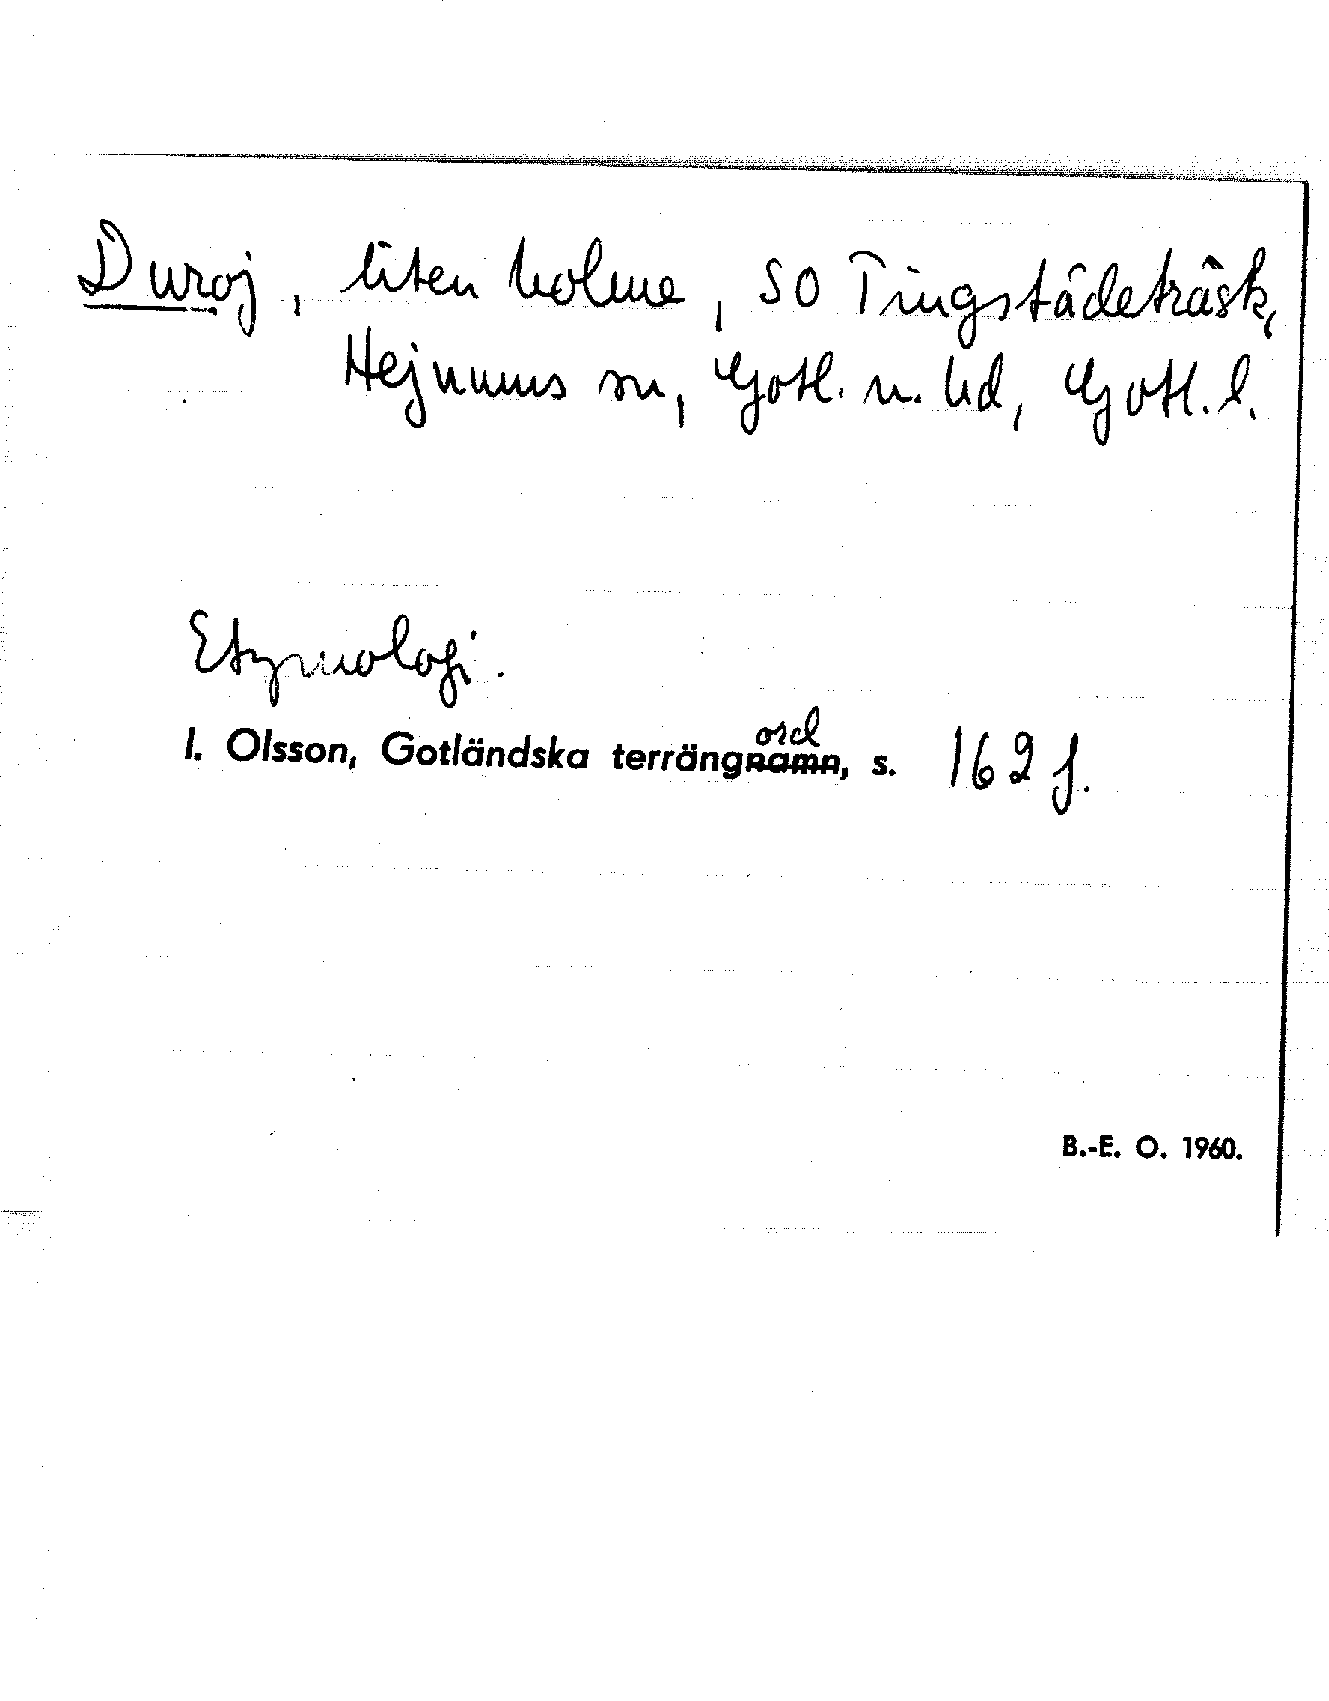 Duroj, liten holme, SO Tingstädeträsk,
Hejnums sn, Gotl. n. hd, Gotl. l.
Etymologi.
I. Olsson, Gotländska terrängnamn ord, s. 162 f.
B.-E. O. 1960.